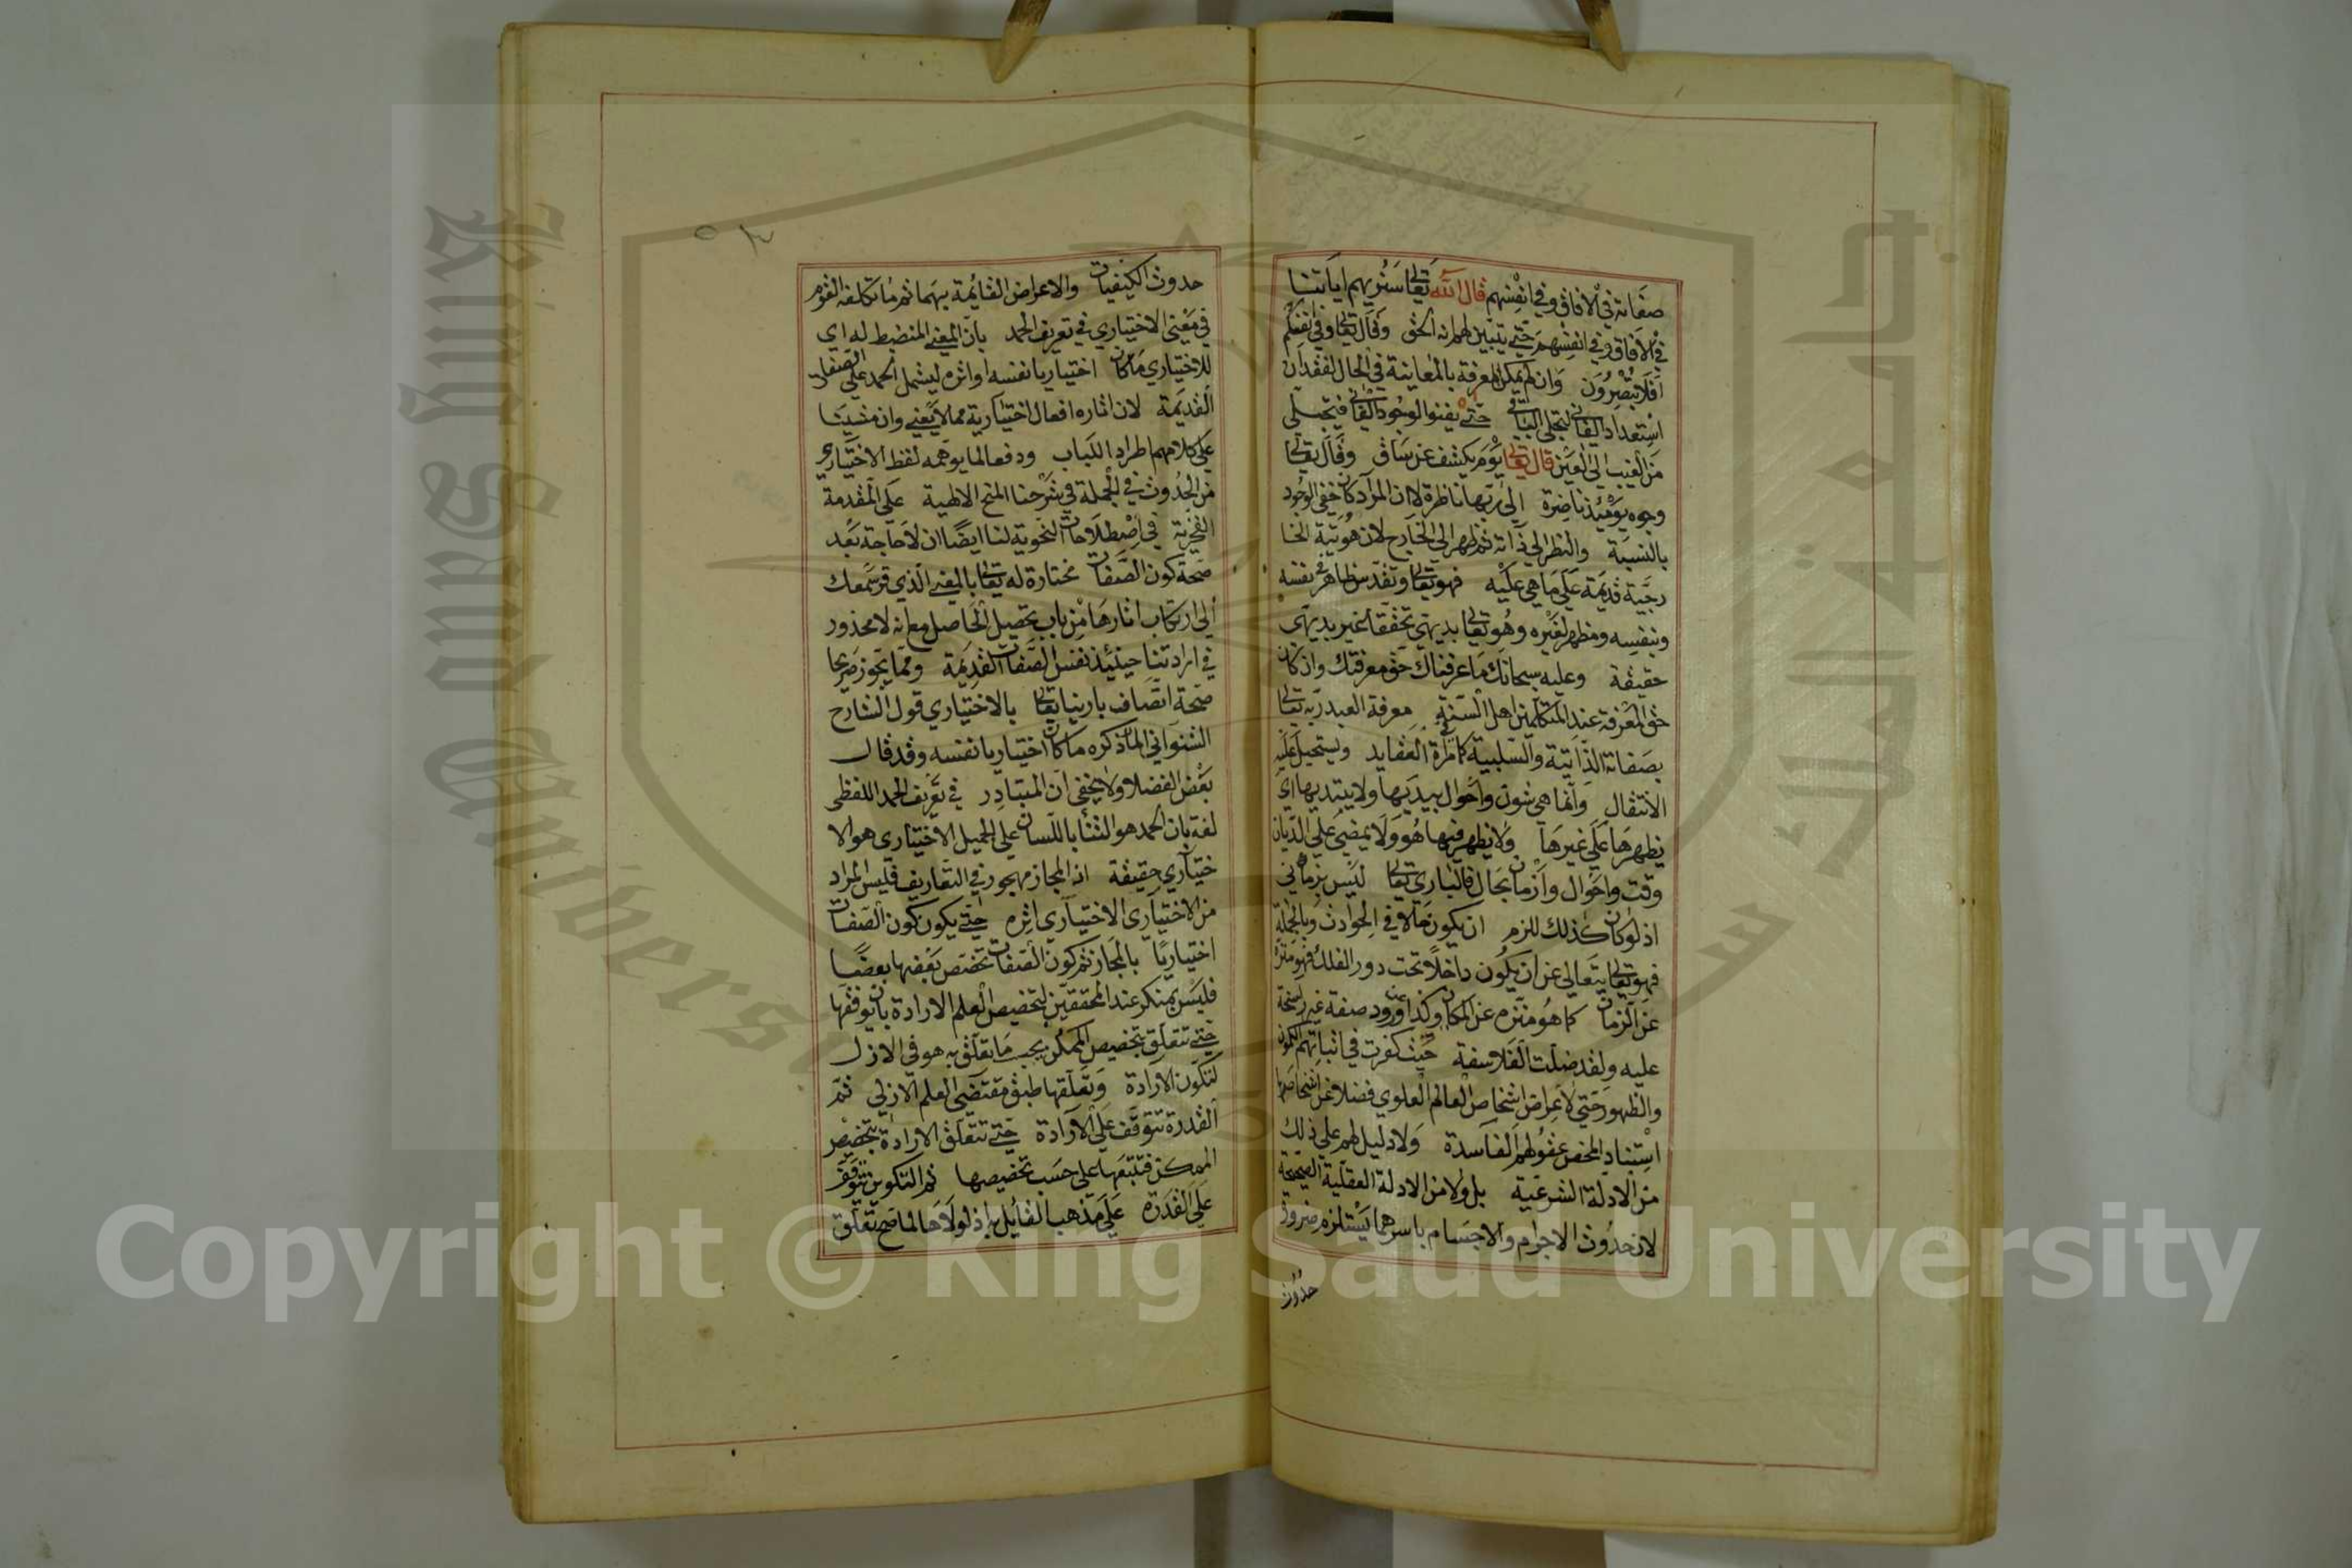 صفاته في الافاق وفي انفسهم قال الله تعالى سنريهم اياتنا
في الافاق وفي انفسهم حتى يتبين لهم انه الحق وقال تعالى وفي انفسكم
افلا تبصرون وان لم يمكن المعرفة بالمعاينة في الحال لفقدان
استعداد الفاني لتجلي الباقي حتى يفنوا لوجود الفاني فيتجلى
من الغيب الى العين قال تعالى يوم يكشف عن ساق وقال تعالى
وجوه يومئذ ناضرة الى ربها ناظرة لا ان المراد كان خفي الوجود
بالنسبة والنظر الى ذاته ثم ظهر الى الخارج لان هويته الخا
رجية قديمة على ما هي عليه فهو تعالى وتقدس ظاهر في نفسه
وبنفسه ومظهر لغيره وهو تعالى بديهي تحققا غير بديهي
حقيقة وعليه سبحانك ما عرفناك حق معرفتك وان كان
حق المعرفة عند المتكلمين اهل السنة معرفة العبد ربه تعالى
بصفاته الذاتية والسلبية كما مر في العقايد ويستحيل عليه
الانتقال وانما هي شون واحوال يبديها ولا يبتديها اي
يظهرها على غيرها ولا يظهر فيها هو ولا يمضي على الديان
وقت واحوال وازمان بحال فالباري تعالى ليس بزماني
اذ لو كان كذلك للزم ان يكون حالا في الحوادث وبالجملة
فهو تعالى يتعالى عن ان يكون داخلا تحت دور الفلك فهو منزه
عن الزمان كما هو منزه عن المكان وكذا عن ورود صفة غير راسخة
عليه ولقد ضلت الفلاسفة حيث كفرت في اثباتهم الكمون
والظهور حتى لاعراض اشخاص العالم العلوي فضلا عن اشخاصها
استنادا لمحض عقولهم الفاسدة ولا دليل لهم على ذلك
من الادلة الشرعية بل ولا من الادلة العقلية الصحيحة
لان حدوث الاجرام والاجسام باسرهما يستلزم ضرورة
حدوث
حدوث الكيفيات والاعراض القائمة بهما ثم ما تكلفه القوم
في معنى الاختياري في تعريف الحمد بان المعنى المنضبط له اي
للاختياري ما كان اختياريا نفسه او اثره ليشمل الحمد على الصفات
القديمة لان اثاره افعال اختيارية مما لا يعني وان مشينا
على كلامهم اطراد الباب ودفعا لما يوهمه لفظ الاختياري
من الحدوث في الجملة في شرحنا المنح الالهية على المقدمة
الفخرية في اصطلاحات النحوية لنا ايضا ان لا حاجة بعد
صحة كون الصفات مختارة له تعالى بالمعنى الذي قر سمعك
الى ارتكاب اثارها من باب تحصيل الحاصل مع انه لا محذور
في ارادتنا حينئذ نفس الصفات القديمة ومما يجوز صريحا
صحة اتصاف بارينا تعالى بالاختياري قول الشارح
الشنواني المان ذكره ما كان اختياريا نفسه وقد قال
بعض الفضلا ولا يخفى ان المتبادر في تعريف الحمد اللفظي
لغة بان الحمد هو الثناء باللسان على الجميل الاختياري هو الا
ختياري حقيقة اذ المجاز مهجور في التعاريف فليس المراد
من الاختياري الاختياري اثره حتى يكون كون الصفات
اختياريا بالمجاز ثم كون الصفات تختص بعضها بعضا
فليس بمنكر عند المحققين لتخصيص العلم الارادة بان توقفها
حتى تتعلق بتخصيص الممكن بحسب ما تعلق به هو في الازل
لتكون الارادة وتعلقها طبق مقتضى العلم الازلي ثم
القدرة تتوقف على الارادة حتى تتعلق الارادة بتخصيص
الممكن فتتبعها على حسب تخصيصها ثم التكوين تتوقف
على القدرة على مذهب القائل به اذ لولاها لما صح تعلق
Copyright © King Saud University
King Saud University